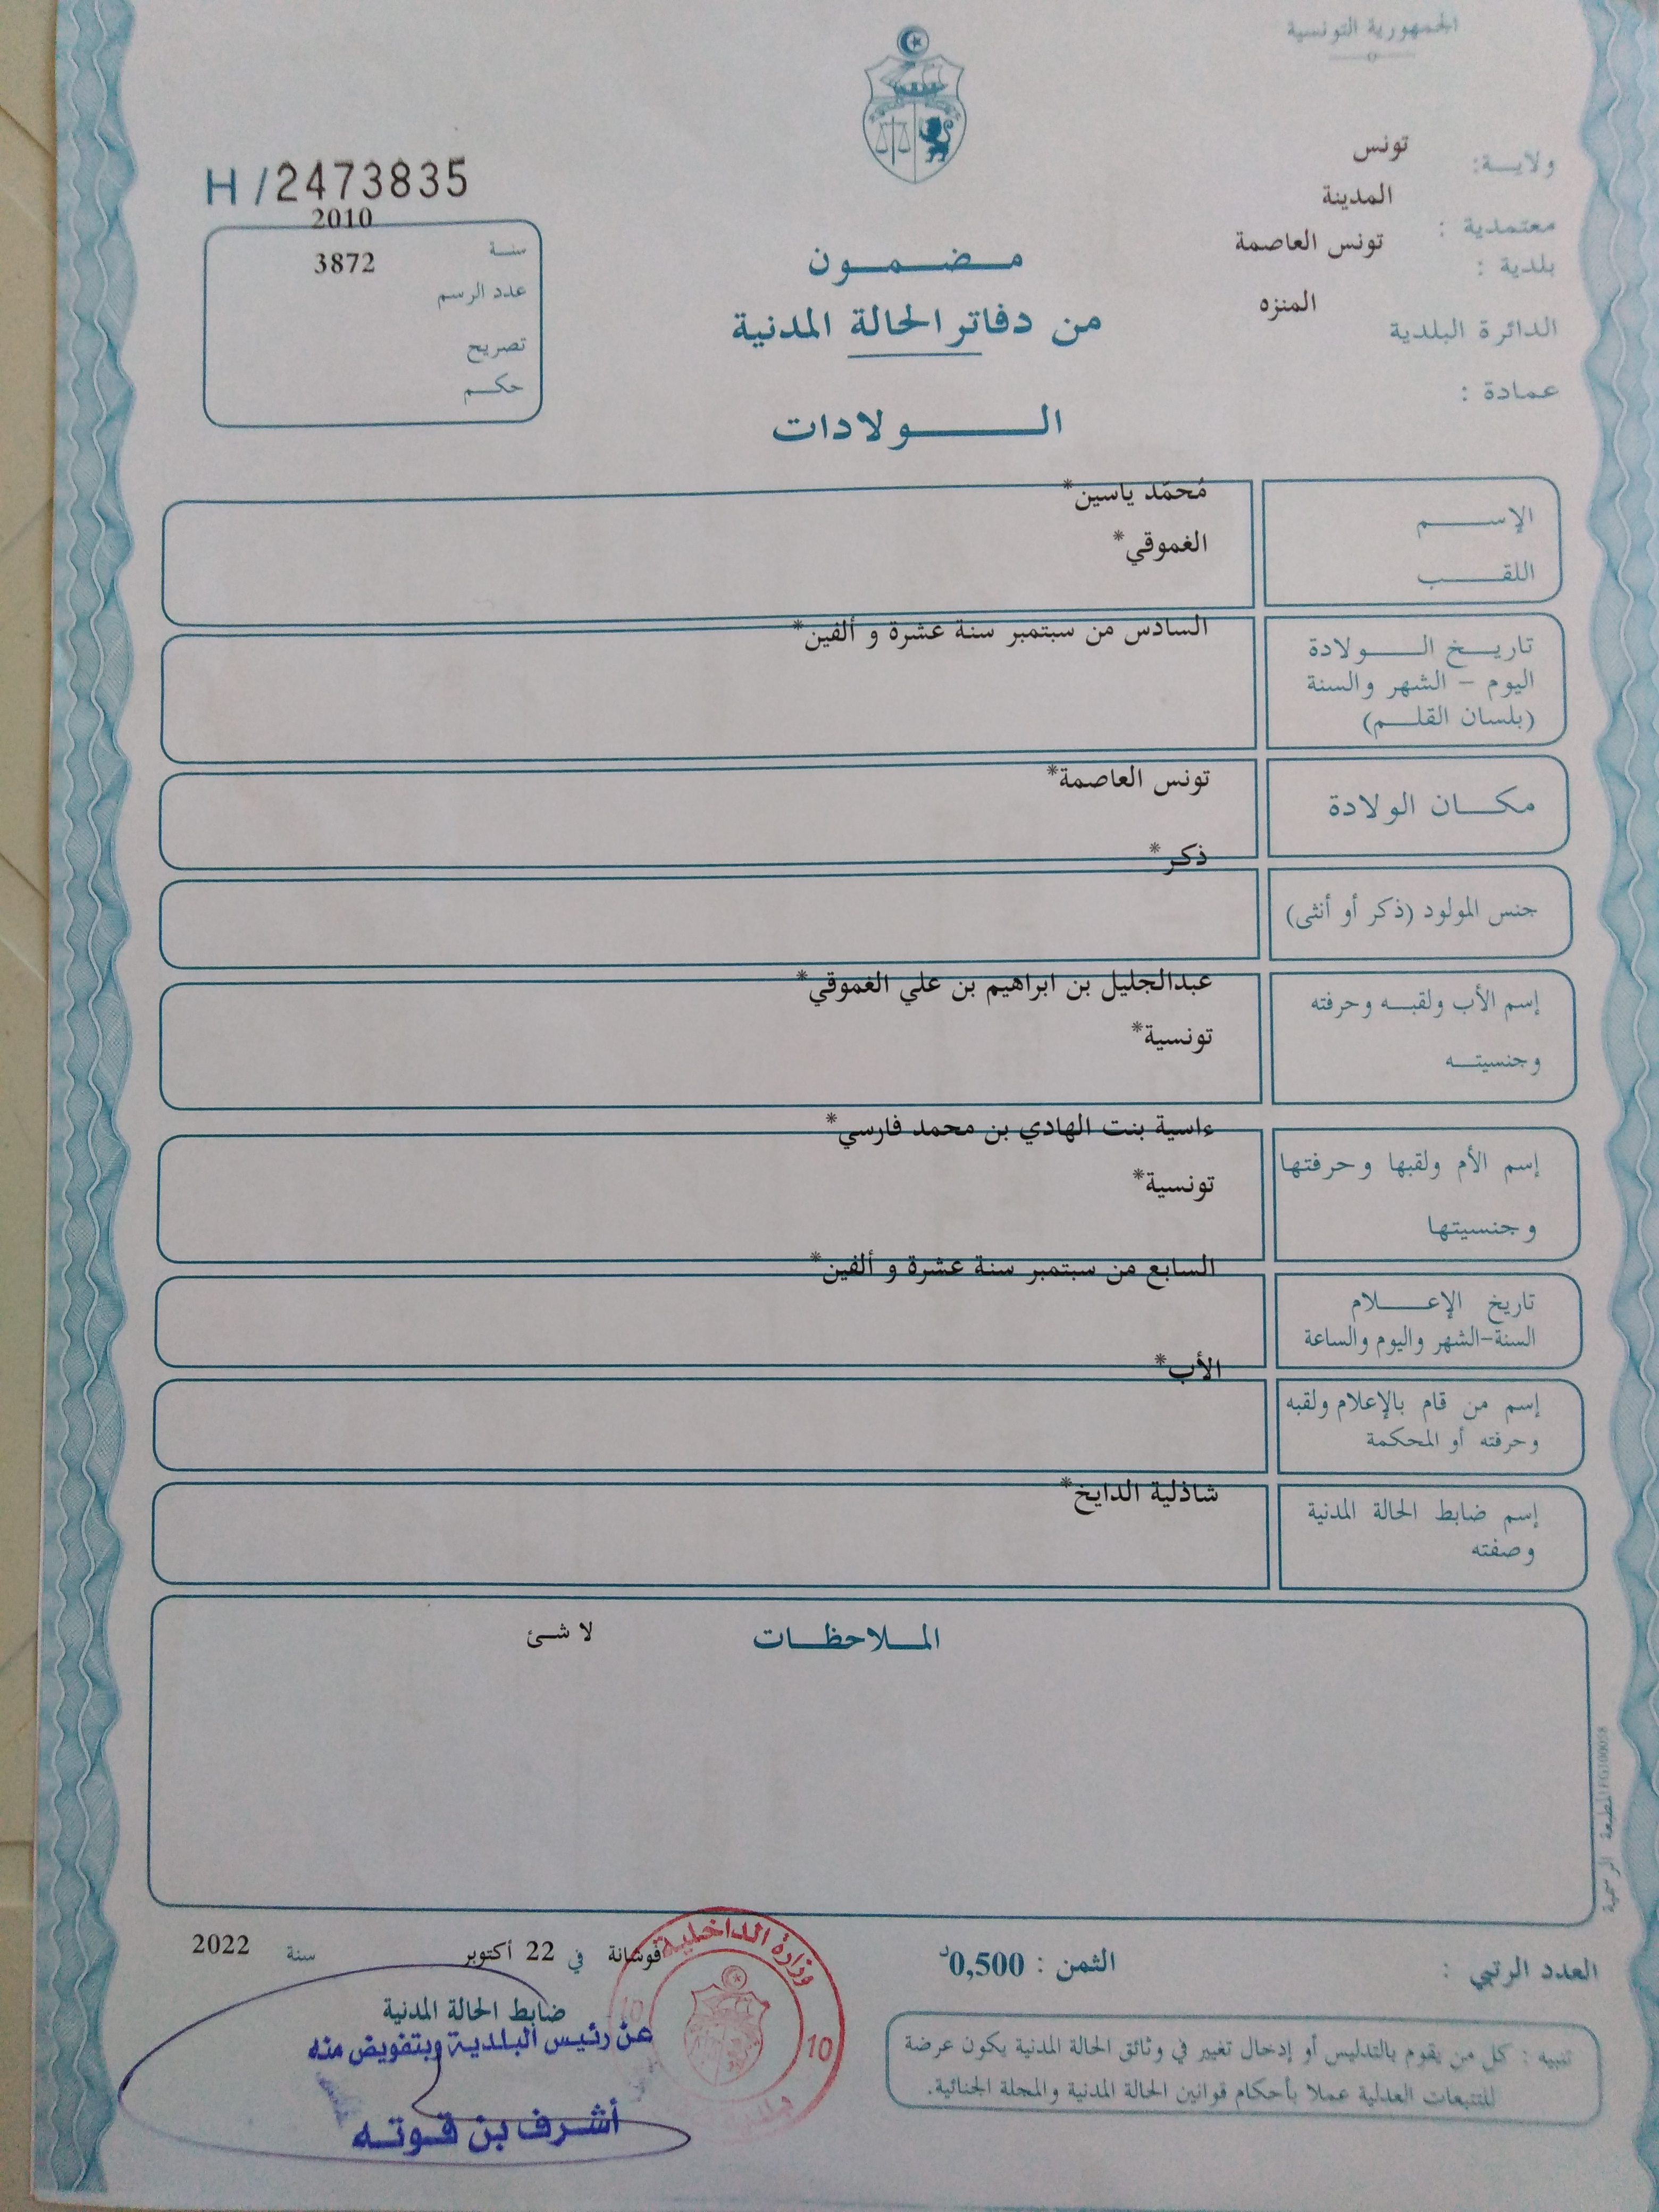 الجمهورية التونسية
ولايـــة: تونس
معتمدية : المدينة
بلدية : تونس العاصمة
الدائرة البلدية المنزه
عمادة :
H/2473835
سنـة 2010
عدد الرسم 3872
تصريح
حكـــم
مـــضـــمـــون
من دفاتر الحالة المدنية
الـــــولادات
الإســــــم مُحمّد ياسين*
اللقـــــب الغموقي*
تاريـــخ الـــــولادة السادس من سبتمبر سنة عشرة و ألفين*
اليوم – الشهر والسنة
(بلسان القلـــم)
مكـــان الولادة تونس العاصمة*
جنس المولود (ذكر أو أنثى) ذكر*
إسم الأب ولقبـــه وحرفته عبدالجليل بن ابراهيم بن علي الغموقي*
وجنسيتـــه تونسية*
إسم الأم ولقبها وحرفتها ءاسية بنت الهادي بن محمد فارسي*
وجنسيتها تونسية*
تاريخ الإعـــــلام السابع من سبتمبر سنة عشرة و ألفين*
السنة-الشهر واليوم والساعة
إسم من قام بالإعلام ولقبه الأب*
وحرفته أو المحكمة
إسم ضابط الحالة المدنية شاذلية الدايخ*
وصفته
المـــلاحظـــات لا شئ
المطبعة الرسمية FG100058
العدد الرتبي :
الثمن : 0,500د
فوشانة في 22 أكتوبر سنة 2022
ضابط الحالة المدنية
عن رئيس البلدية وبتفويض منه
أشرف بن قوته
وزارة الداخلية
10
10
تنبيه : كل من يقوم بالتدليس أو إدخال تغيير في وثائق الحالة المدنية يكون عرضة
للتتبعات العدلية عملا بأحكام قوانين الحالة المدنية والمجلة الجنائية.